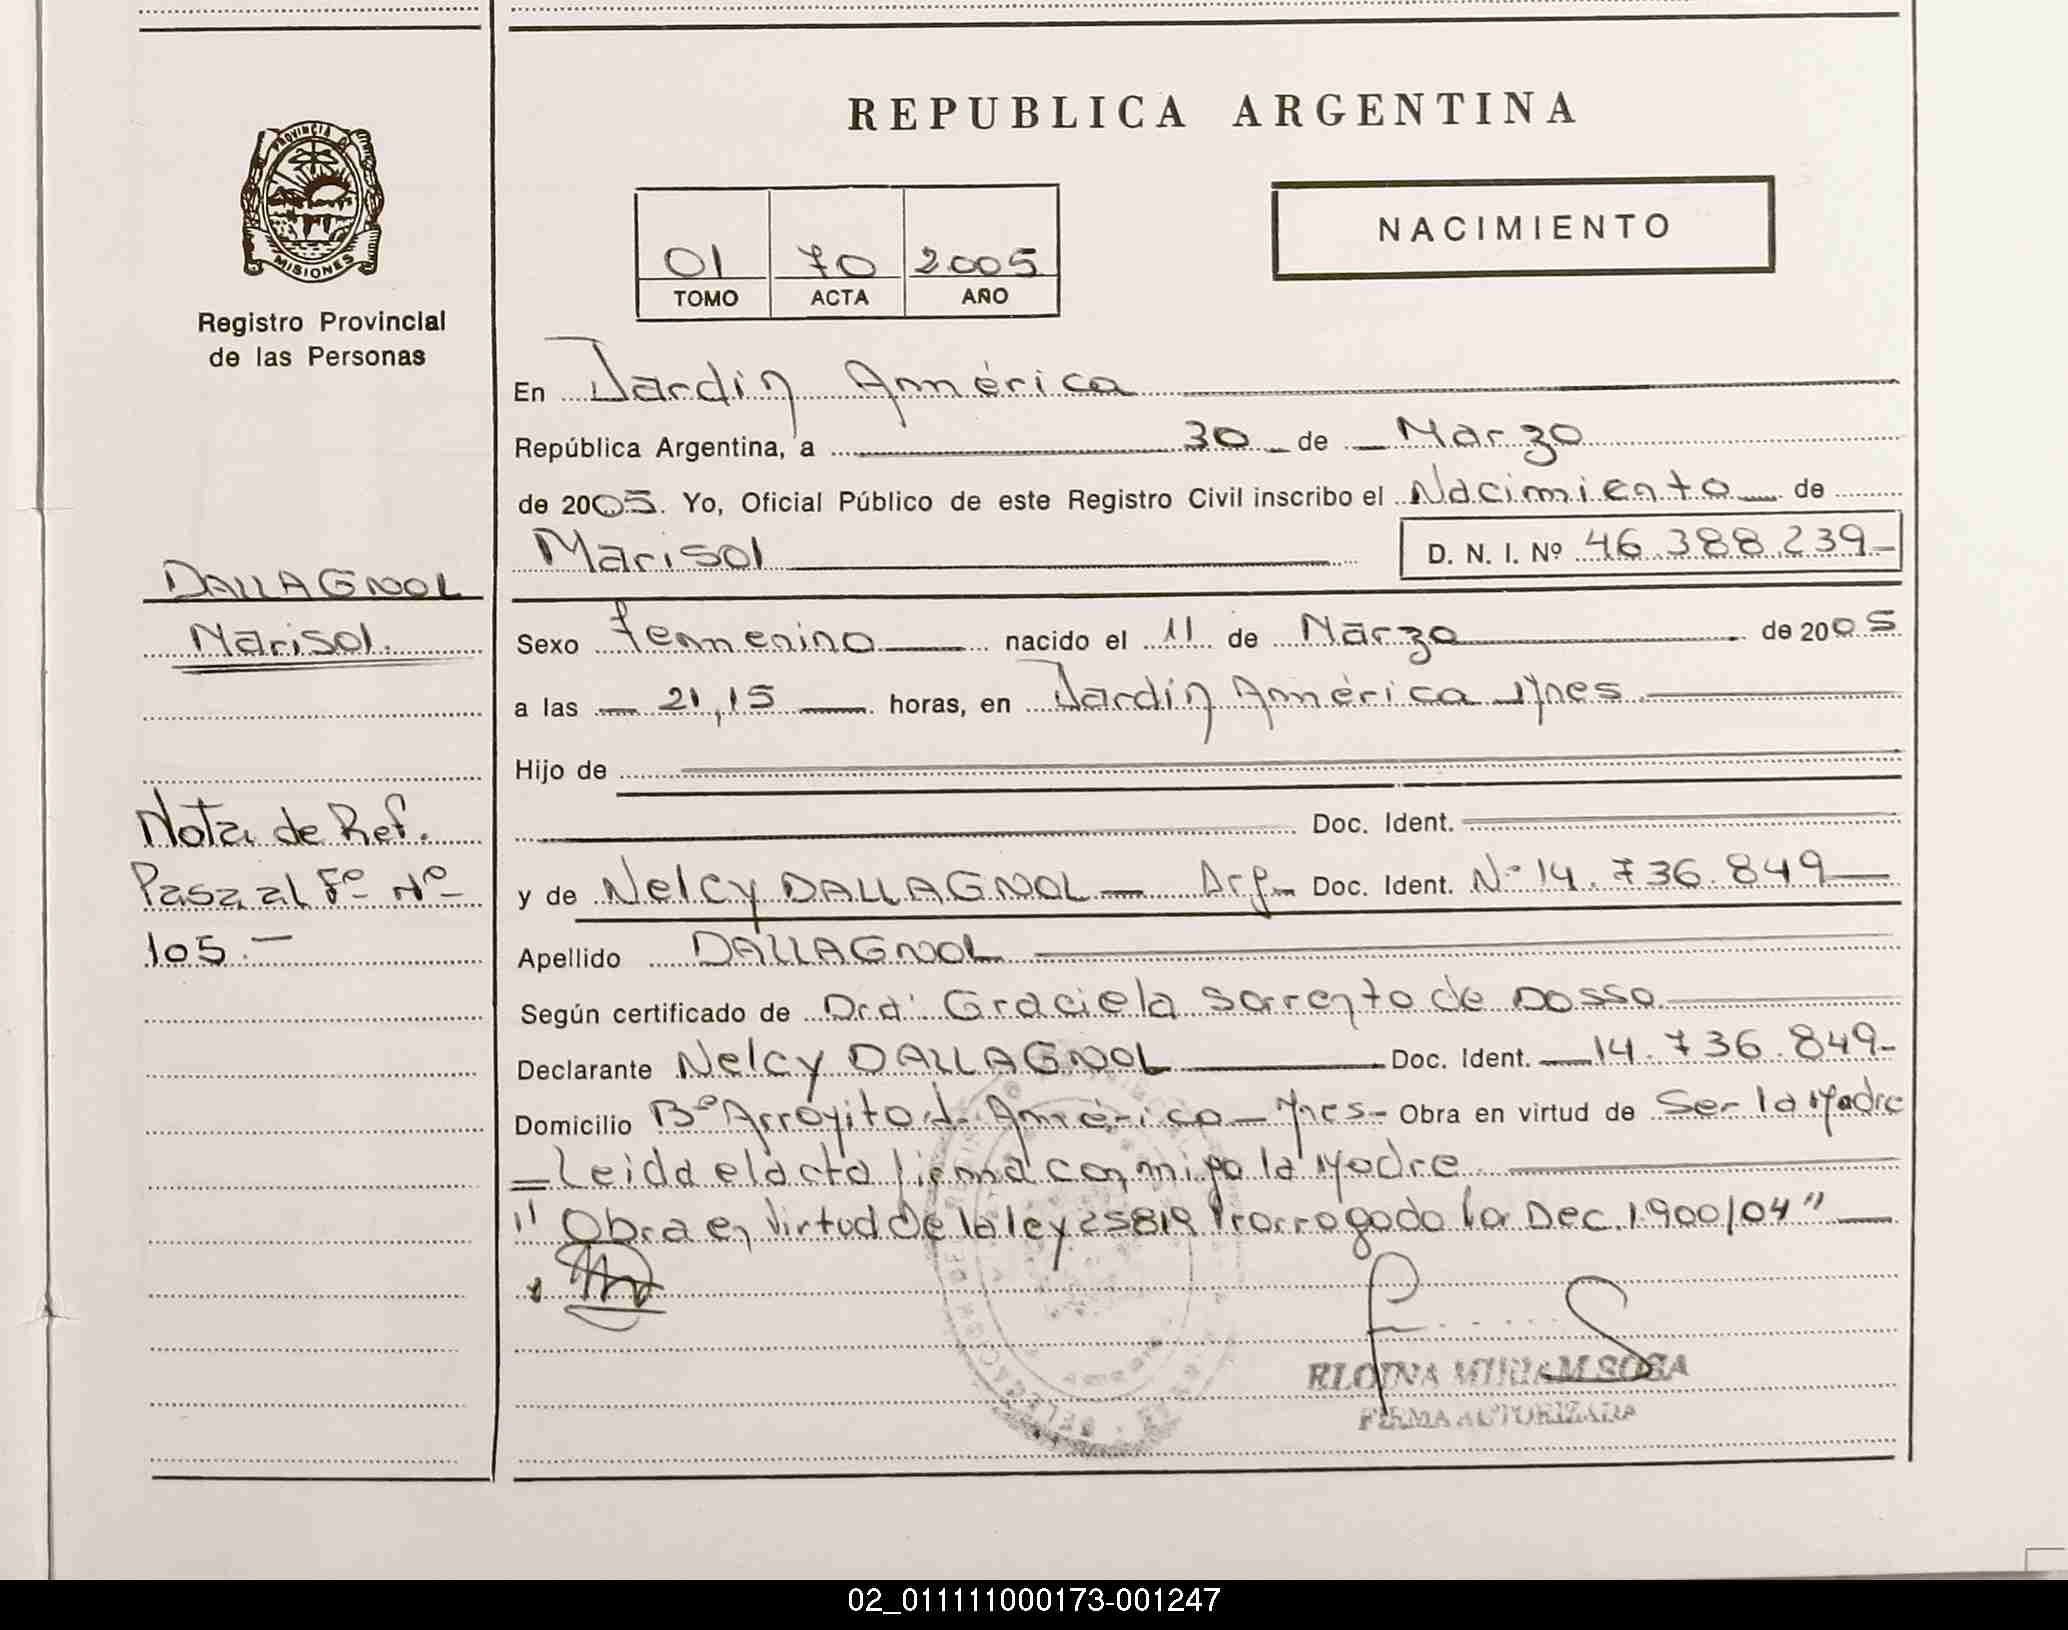 REPUBLICA ARGENTINA
PROVINCIA DE
MISIONES
Registro Provincial
de las Personas
01 70 2005
TOMO ACTA AÑO
NACIMIENTO
En Jardin América
República Argentina, a 30 de Marzo
de 2005. Yo, Oficial Público de este Registro Civil inscribo el Nacimiento de
Marisol D. N. I. Nº 46.388.239-
DALLAGNOL
Marisol.
Sexo Femenino nacido el 11 de Marzo de 2005
a las 21,15 horas, en Jardin América Mnes
Hijo de
Doc. Ident.
Nota de Ref.
Pasa al Fº Nº
105.-
y de Nelcy DALLAGNOL - Arg- Doc. Ident. Nº 14.736.849
Apellido DALLAGNOL
Según certificado de Dra: Graciela Sorrento de Dosso
Declarante Nelcy DALLAGNOL Doc. Ident. 14.736.849-
Domicilio Bº Arroyito J. América - Mnes- Obra en virtud de Ser la Madre
= Leida el acta firma conmigo la Madre
"Obra en Virtud de la ley 25819 Prorrogado por Dec. 1.900/04"
ELOINA MIRIAM SOSA
FIRMA AUTORIZADA
02_011111000173-001247